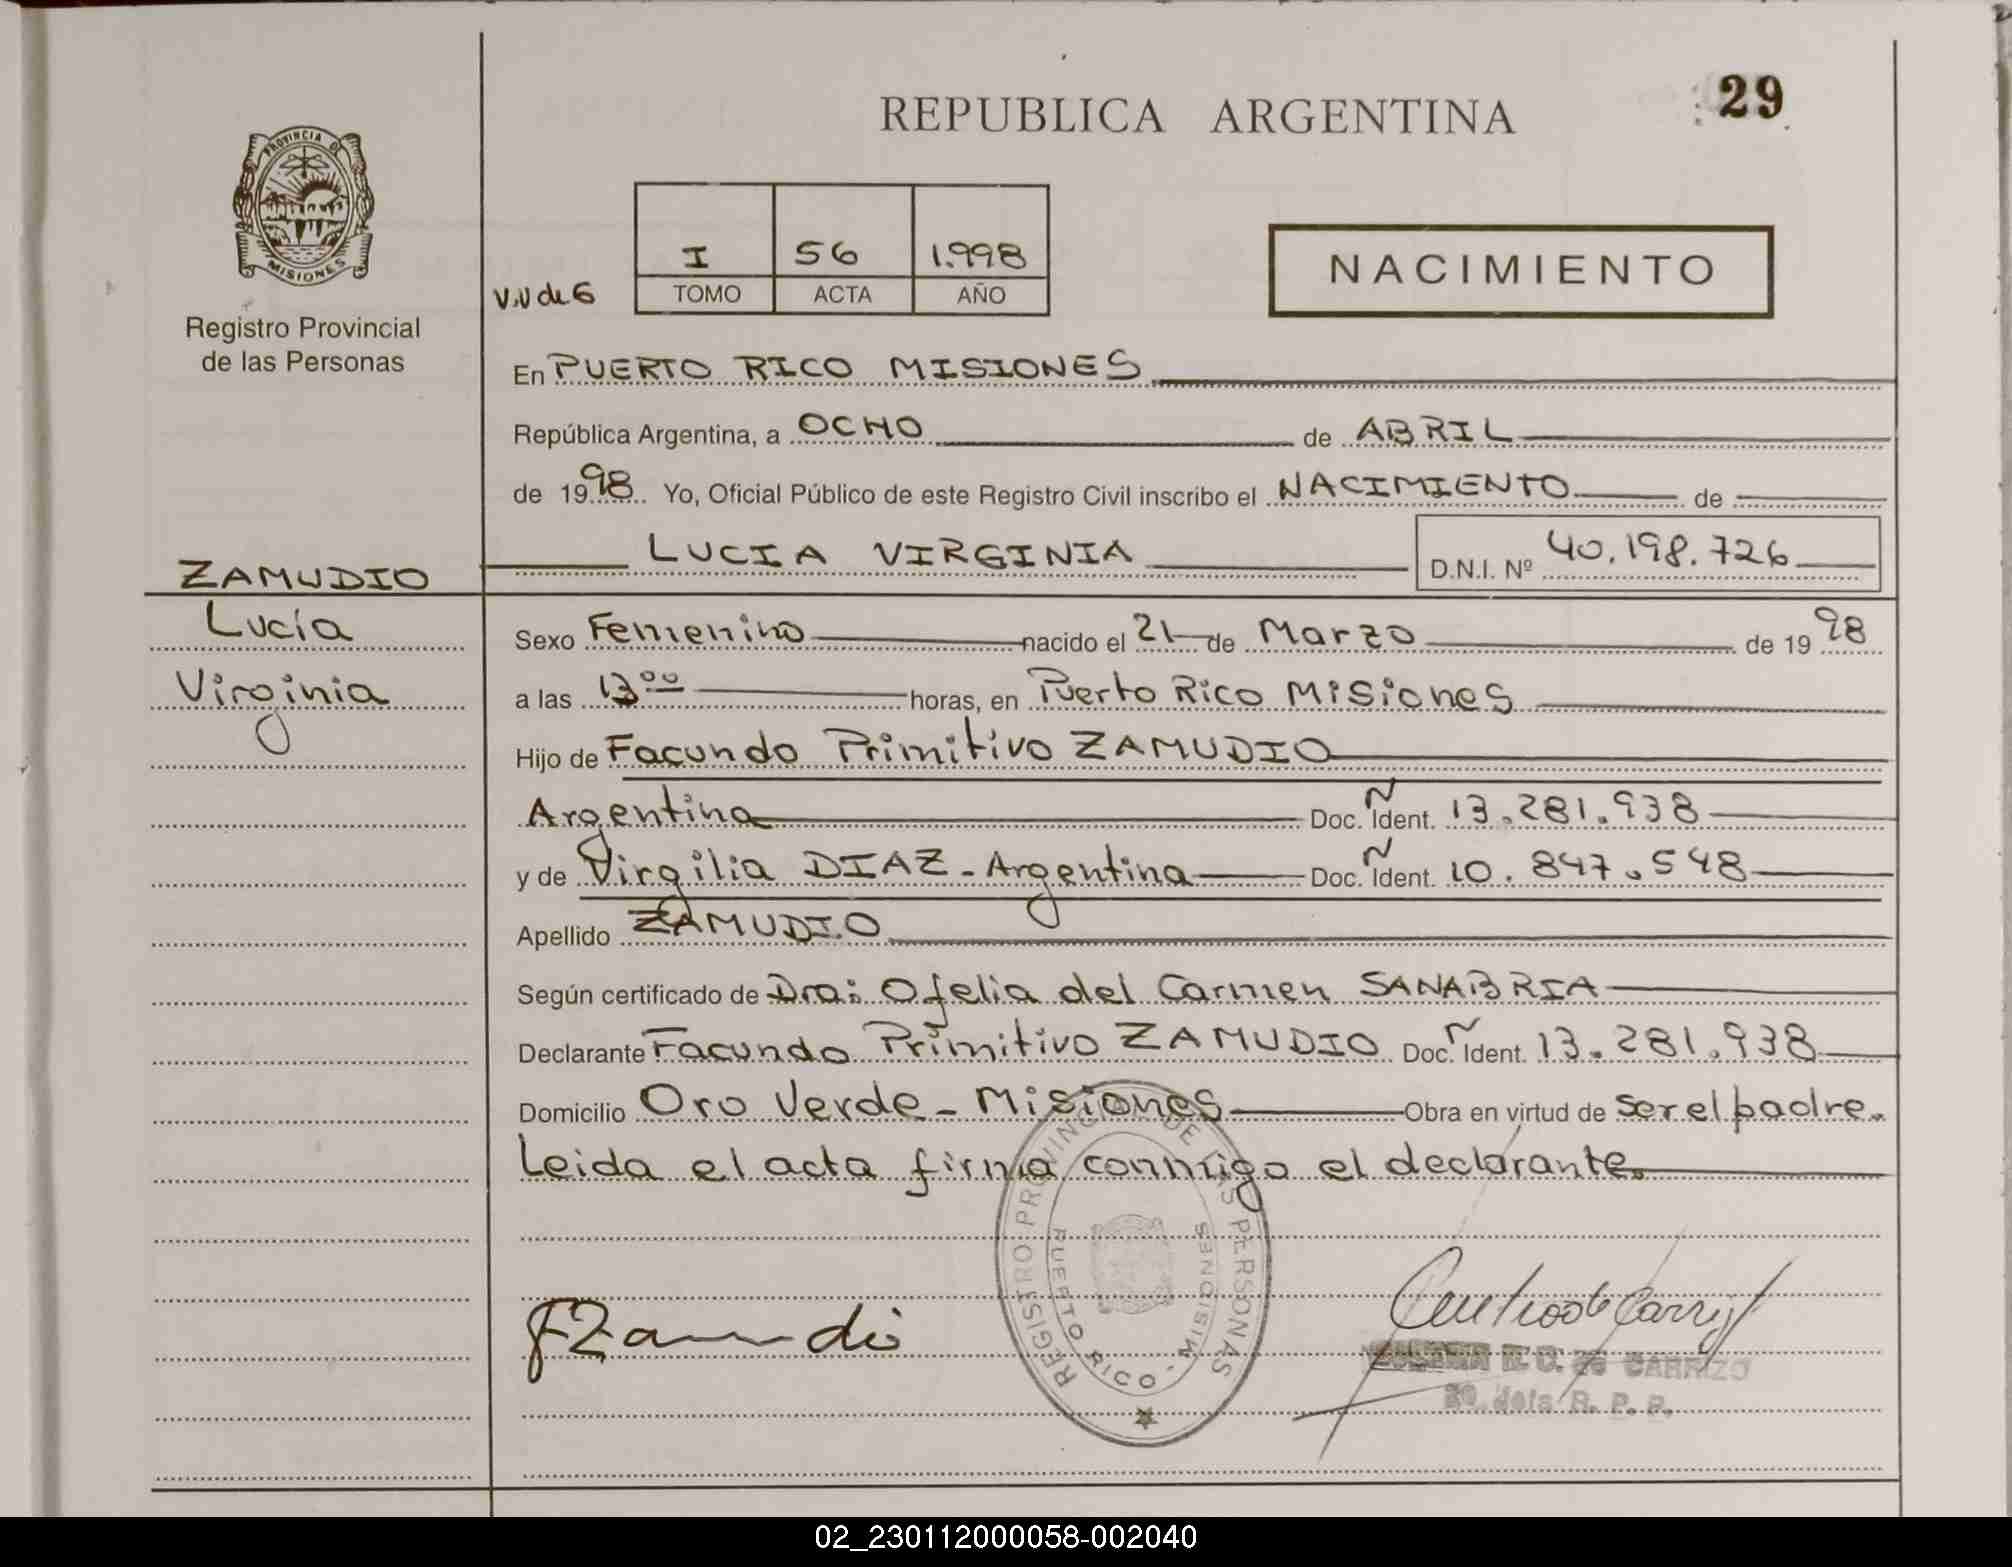 29
REPUBLICA ARGENTINA
PROVINCIA DE
MISIONES
Registro Provincial
de las Personas
I 56 1.998
TOMO ACTA AÑO
NACIMIENTO
En PUERTO RICO MISIONES
República Argentina, a OCHO de ABRIL
de 1998 Yo, Oficial Público de este Registro Civil inscribo el NACIMIENTO de
LUCIA VIRGINIA D.N.I. Nº 40.198.726
ZAMUDIO
Lucía
Virginia
Sexo Femenino nacido el 21 de Marzo de 1998
a las 13 00 horas, en Puerto Rico Misiones
Hijo de Facundo Primitivo ZAMUDIO
Argentina Doc. Ident. 13.281.938
y de Virgilia DIAZ - Argentina Doc. Ident. 10.847.548
Apellido ZAMUDIO
Según certificado de Dra: Ofelia del Carmen SANABRIA
Declarante Facundo Primitivo ZAMUDIO Doc. Ident. 13.281.938
Domicilio Oro Verde - Misiones Obra en virtud de ser el padre.
Leida el acta firma conmigo el declarante.
REGISTRO PROVINCIAL DE LAS PERSONAS
PUERTO RICO - MISIONES
de CARRIZO
R. P. P.
02_230112000058-002040